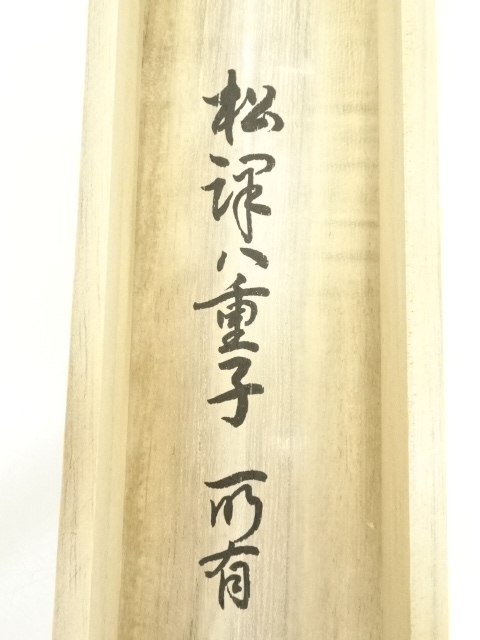 松澤八重子 所有